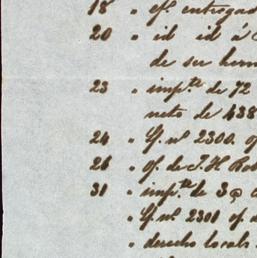 18 " efº entregad
20 " id id á
de su herm
23 " imp.te de 72
neto de 438
24 " Lp. nº 2300. o
26 " of. de J. H Rob
31 " imp.te de 3@ c
" Lp. nº 2301 of. d
" derecho locals